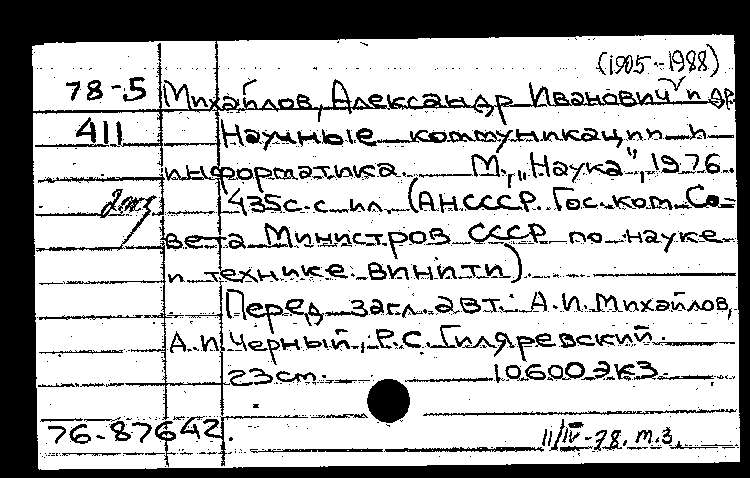 (1905-1988)
78-5 Михайлов, Александр Иванович и др
411 Научные коммуникации и
информатика. М., „Наука", 1976.
2 экз 435с. с ил. (АНСССР. Гос. ком. Со=
вета Министров СССР по науке
и технике. ВИНИТИ)
Перед загл. авт.: А.И. Михайлов,
А.И. Черный, Р.С. Гиляревский.
23 cm. 10600 экз.
76-87642. 11/IV-78. т.з.